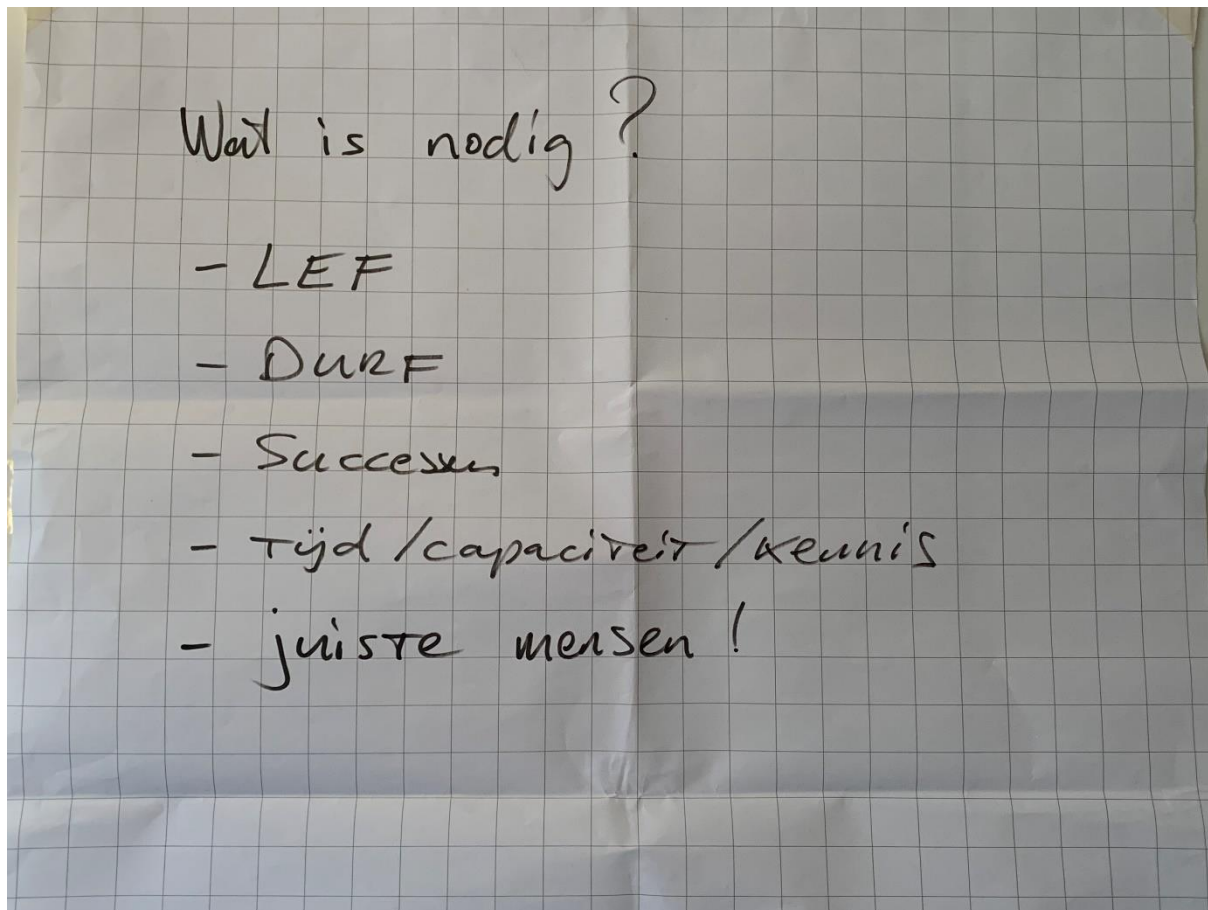 Wat is nodig ?
- LEF
- DURF
- Successen
- Tijd /capaciteit /kennis
- juiste mensen !